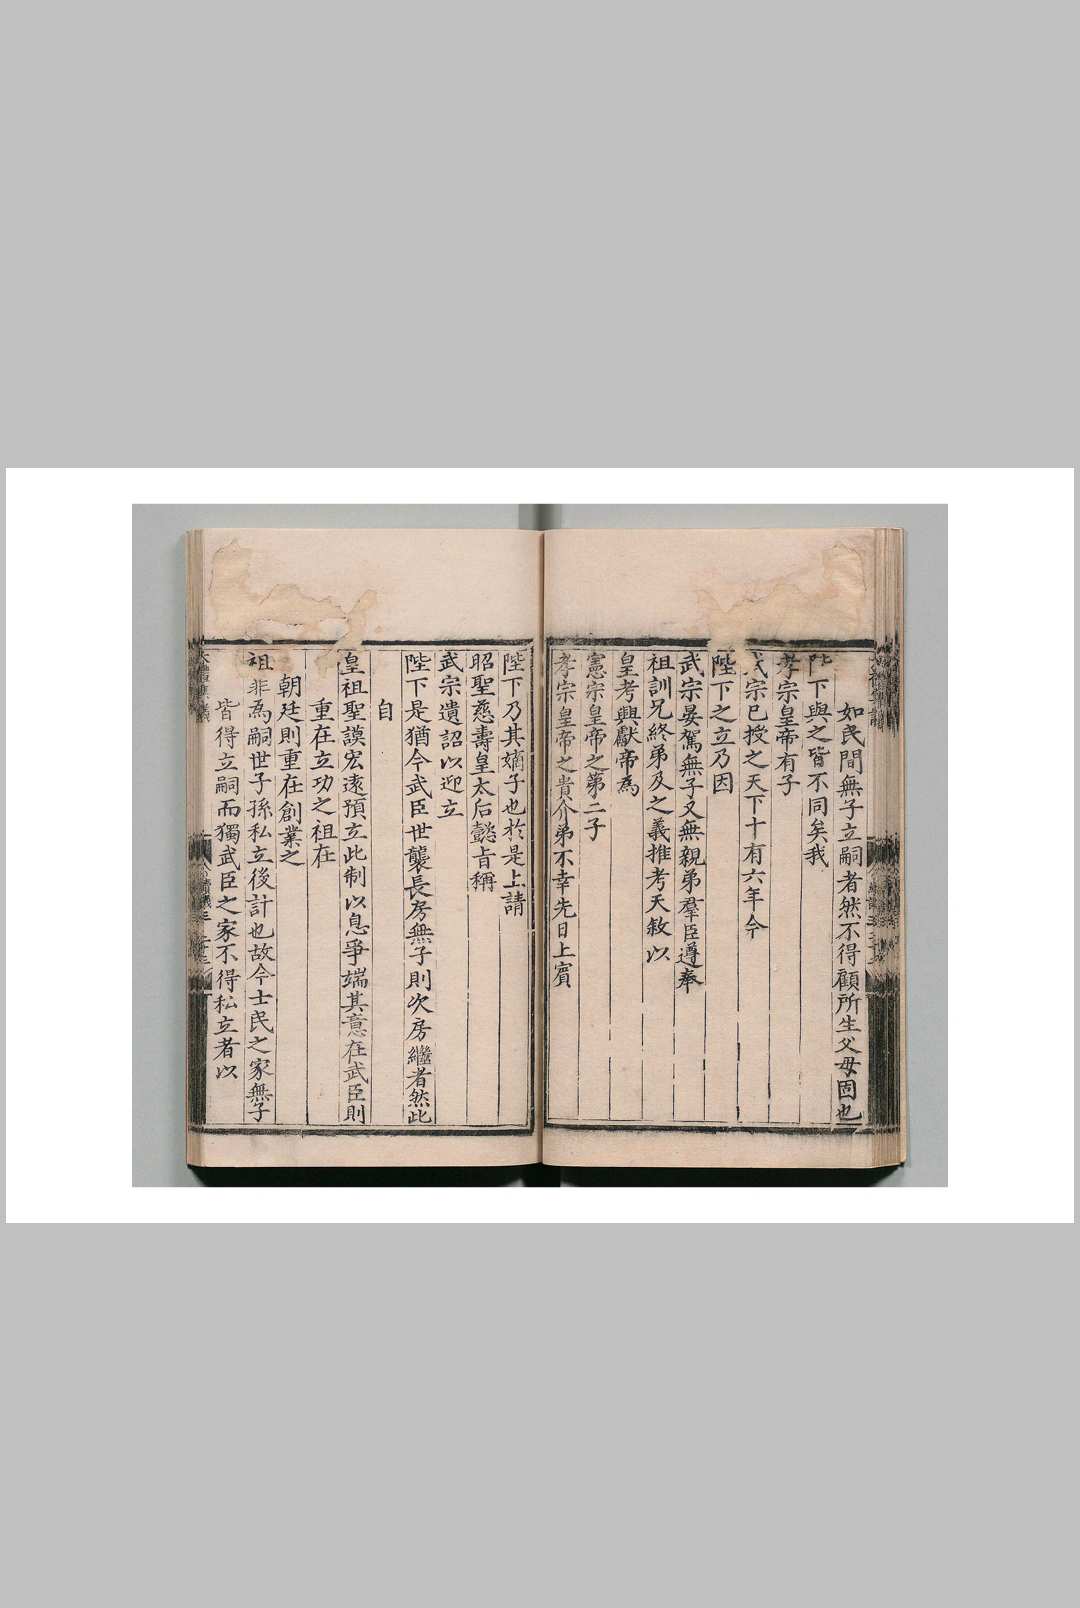 如民間無子立嗣者然不得顧所生父母固也
陛下與之皆不同矣我
孝宗皇帝有子
武宗已授之天下十有六年今
陛下之立乃因
武宗晏駕無子又無親弟羣臣遵奉
祖訓兄終弟及之義推考天敘以
皇考興獻帝為
憲宗皇帝之第二子
孝宗皇帝之貴介弟不幸先日上賓
陛下乃其嫡子也於是上請
昭聖慈壽皇太后懿旨稱
武宗遺詔以迎立
陛下是猶今武臣世襲長房無子則次房繼者然此
自
皇祖聖謨宏遠預立此制以息爭端其意在武臣則
重在立功之祖在
朝廷則重在創業之
祖非為嗣世子孫私立後計也故今士民之家無子
皆得立嗣而獨武臣之家不得私立者以